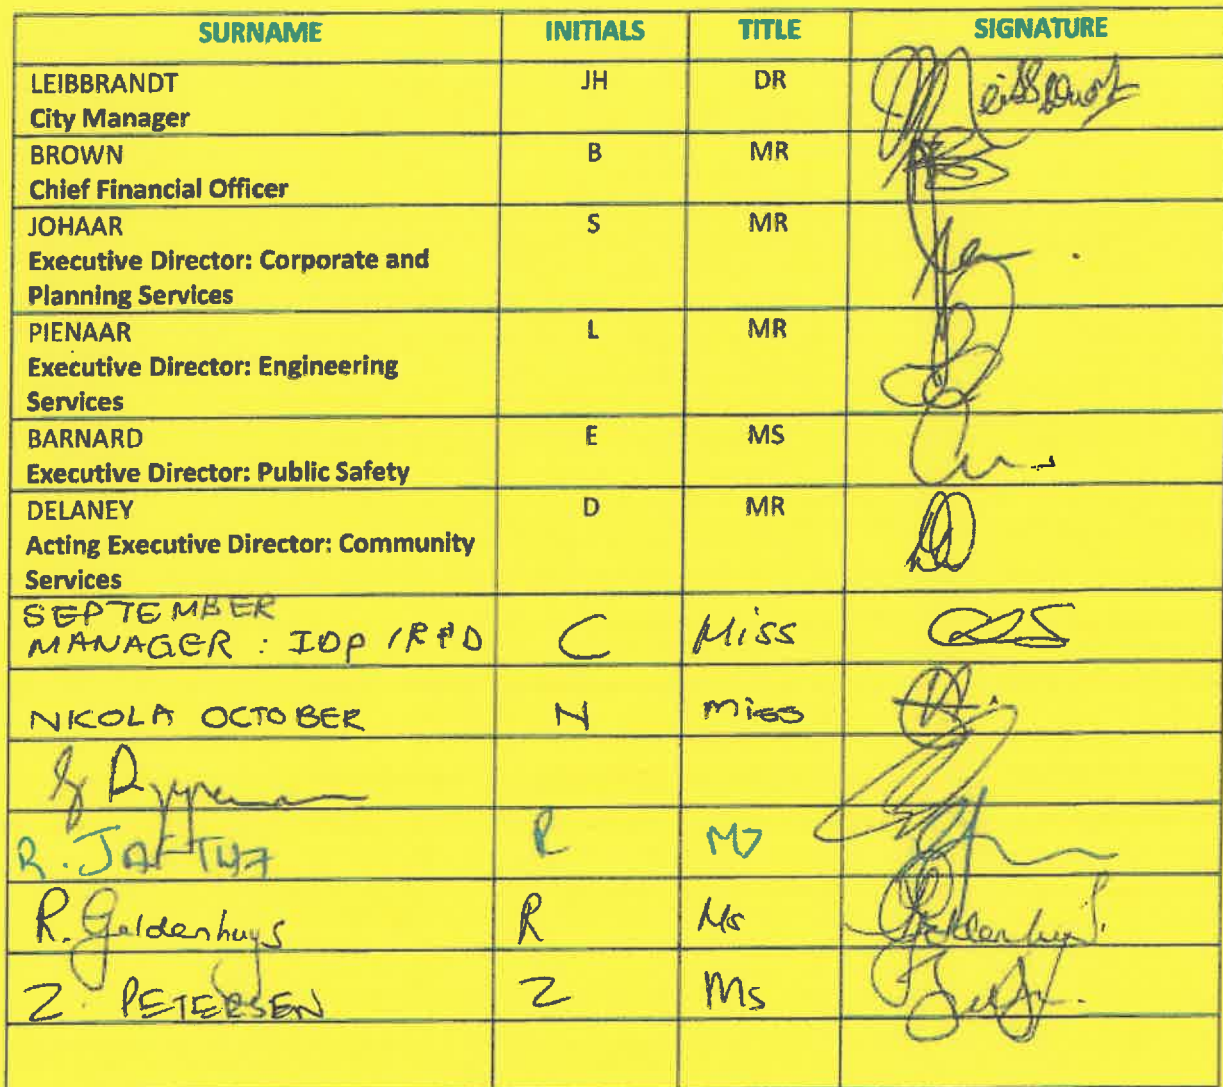 SURNAME INITIALS TITLE SIGNATURE
LEIBBRANDT JH DR
City Manager
BROWN B MR
Chief Financial Officer
JOHAAR S MR
Executive Director: Corporate and
Planning Services
PIENAAR L MR
Executive Director: Engineering
Services
BARNARD E MS
Executive Director: Public Safety
DELANEY D MR
Acting Executive Director: Community
Services
SEPTEMBER
MANAGER : IDP /R&D C Miss
NICOLA OCTOBER N Miss
R. JAFTHA R
R. Geldenhuys R Ms Geldenhuys
Z. PETERSEN Z Ms